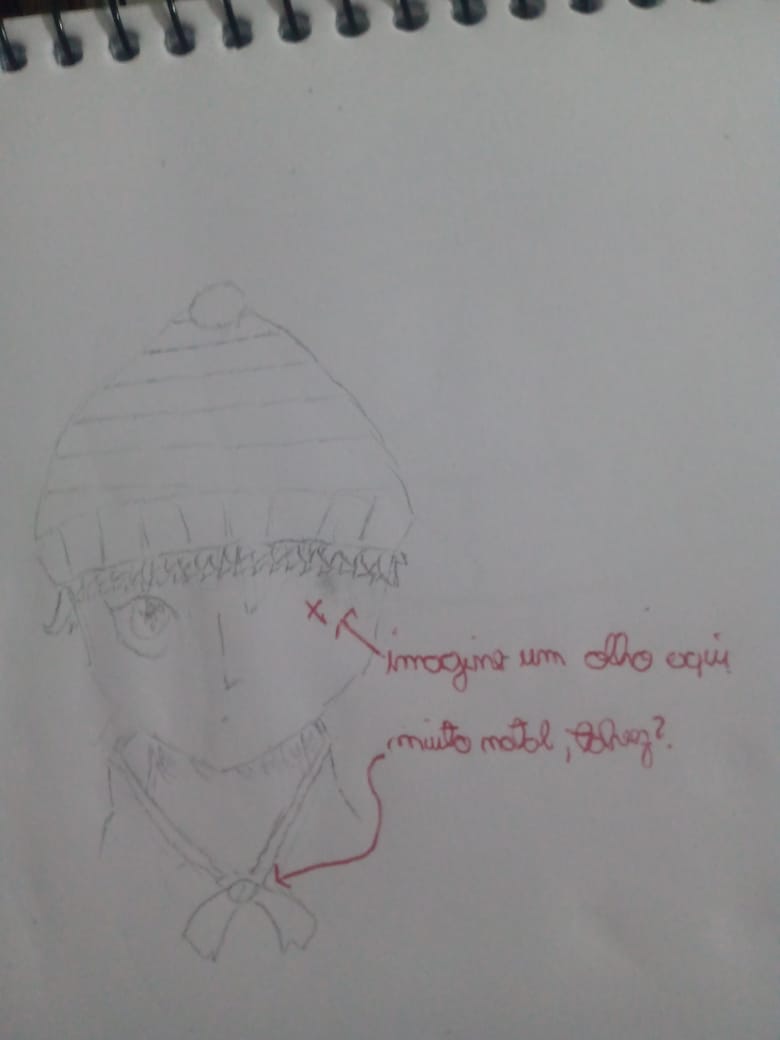 imagine um olho aqui
muito natal, talvez?